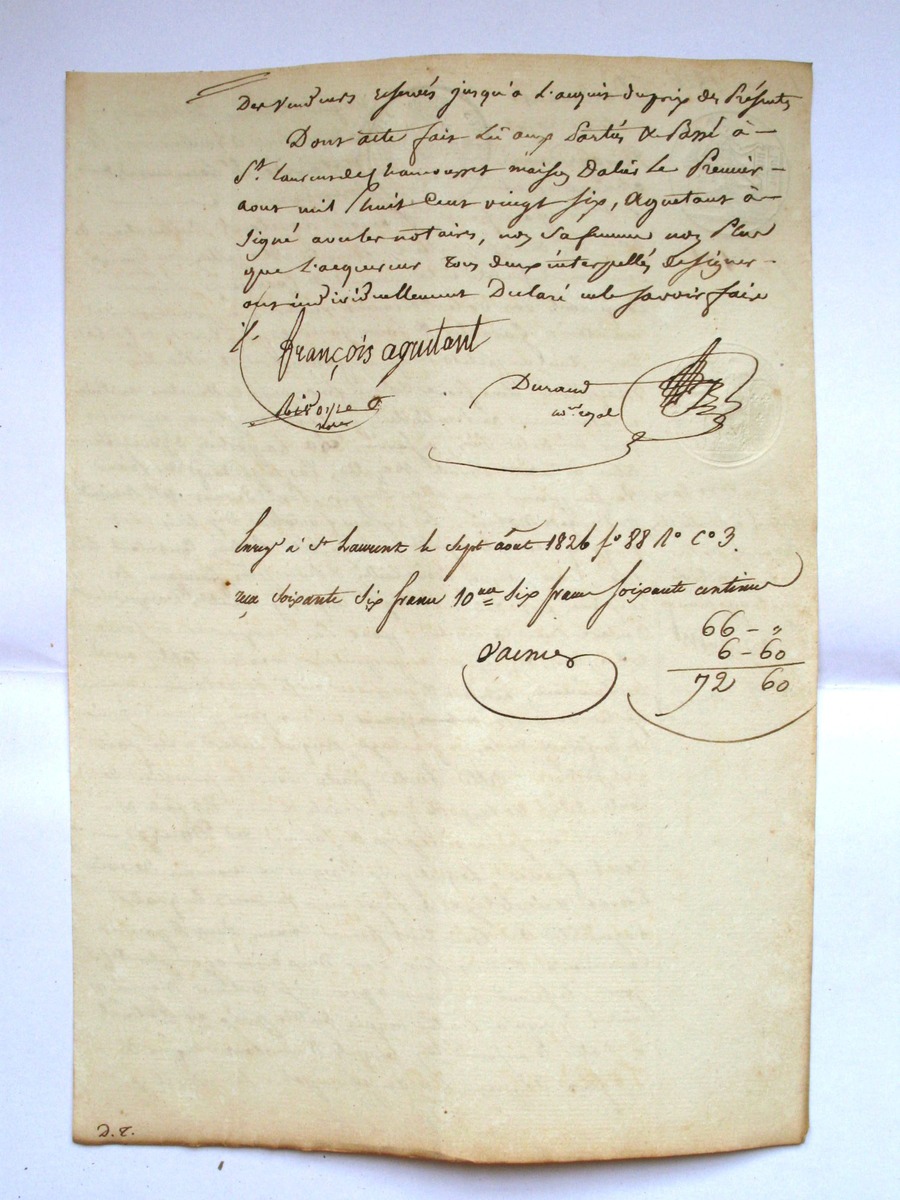 Des Vendeurs reservés jusqu'a L'acquit du prix des Présentes
Dont acte fait Lu aux Parties & Passé à
St. Laurent de Chamousset maison Dalier Le Premier
aout mil huit Cent vingt Six, Aguetant à
Signé avec les notaires, non Sa femme non Plus
que L'acquereur tous deux interpellés de signer
ont individuellement Declaré ne le savoir faire
françois aguetant
Durand
nore royal
Enregé à St Laurent le Sept août 1826 fo 88 Ro Co 3.
reçu soixante six francs 10me six francs soixante centimes
66 - "
6 - 60
72 60
D. T.